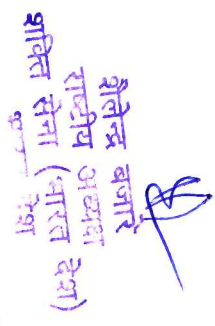 शैलेन्द्र बनारे
राष्ट्रीय अध्यक्ष
शक्ति सेना (भारत देश)